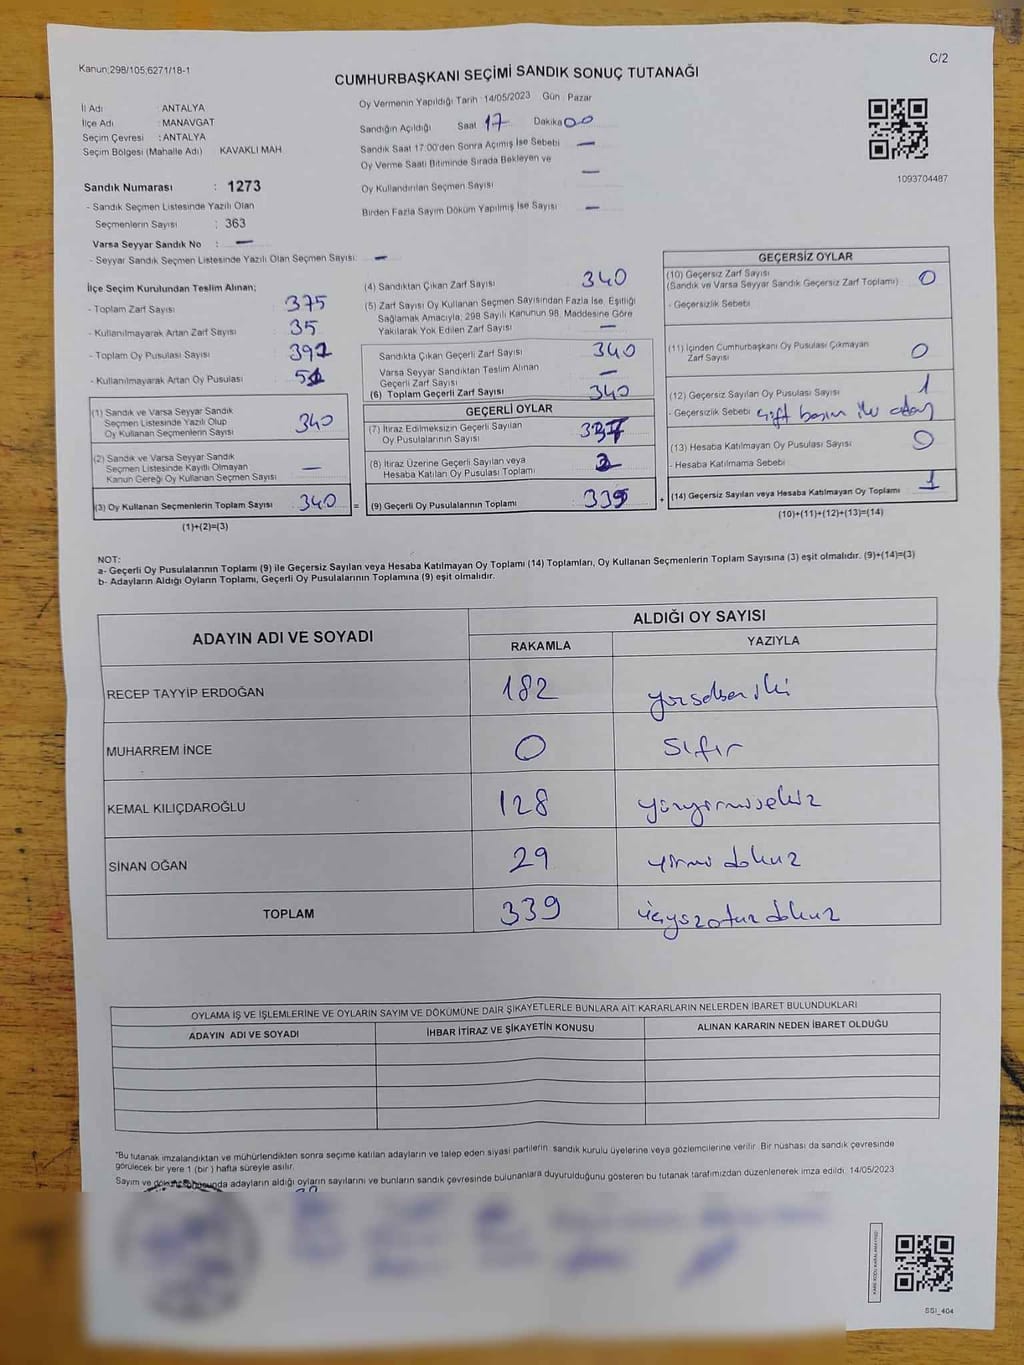 Kanun;298/105;6271/18-1
C/2
CUMHURBAŞKANI SEÇİMİ SANDIK SONUÇ TUTANAĞI
İl Adı : ANTALYA
İlçe Adı : MANAVGAT
Seçim Çevresi : ANTALYA
Seçim Bölgesi (Mahalle Adı) KAVAKLI MAH
Oy Vermenin Yapıldığı Tarih :14/05/2023 Gün : Pazar
Sandığın Açıldığı Saat 17 Dakika 00
Sandık Saat 17:00'den Sonra Açımış İse Sebebi —
Oy Verme Saati Bitiminde Sırada Bekleyen ve
Oy Kullandırılan Seçmen Sayısı —
Birden Fazla Sayım Döküm Yapılmış İse Sayısı —
1093704487
Sandık Numarası : 1273
- Sandık Seçmen Listesinde Yazılı Olan
Seçmenlerin Sayısı : 363
Varsa Seyyar Sandık No : —
- Seyyar Sandık Seçmen Listesinde Yazılı Olan Seçmen Sayısı: —
İlçe Seçim Kurulundan Teslim Alınan;
- Toplam Zarf Sayısı 375
- Kullanılmayarak Artan Zarf Sayısı 35
- Toplam Oy Pusulası Sayısı
- Kullanılmayarak Artan Oy Pusulası
(1) Sandık ve Varsa Seyyar Sandık
Seçmen Listesinde Yazılı Olup
Oy Kullanan Seçmenlerin Sayısı 340
(2) Sandık ve Varsa Seyyar Sandık
Seçmen Listesinde Kayıtlı Olmayan
Kanun Gereği Oy Kullanan Seçmen Sayısı —
(3) Oy Kullanan Seçmenlerin Toplam Sayısı 340 =
(1)+(2)=(3)
(4) Sandıktan Çıkan Zarf Sayısı 340
(5) Zarf Sayısı Oy Kullanan Seçmen Sayısından Fazla İse, Eşitliği
Sağlamak Amacıyla; 298 Sayılı Kanunun 98. Maddesine Göre
Yakılarak Yok Edilen Zarf Sayısı —
Sandıkta Çıkan Geçerli Zarf Sayısı 340
Varsa Seyyar Sandıktan Teslim Alınan
Geçerli Zarf Sayısı —
(6) Toplam Geçerli Zarf Sayısı 340
GEÇERLİ OYLAR
(7) İtiraz Edilmeksizin Geçerli Sayılan
Oy Pusulalarının Sayısı 337
(8) İtiraz Üzerine Geçerli Sayılan veya
Hesaba Katılan Oy Pusulası Toplamı 2
(9) Geçerli Oy Pusulalarının Toplamı 339 +
GEÇERSİZ OYLAR
(10) Geçersiz Zarf Sayısı 0
(Sandık ve Varsa Seyyar Sandık Geçersiz Zarf Toplamı)
- Geçersizlik Sebebi
(11) İçinden Cumhurbaşkanı Oy Pusulası Çıkmayan
Zarf Sayısı 0
(12) Geçersiz Sayılan Oy Pusulası Sayısı 1
- Geçersizlik Sebebi çift basım iki aday
(13) Hesaba Katılmayan Oy Pusulası Sayısı 0
- Hesaba Katılmama Sebebi
(14) Geçersiz Sayılan veya Hesaba Katılmayan Oy Toplamı 1
(10)+(11)+(12)+(13)=(14)
NOT:
a- Geçerli Oy Pusulalarının Toplamı (9) ile Geçersiz Sayılan veya Hesaba Katılmayan Oy Toplamı (14) Toplamları, Oy Kullanan Seçmenlerin Toplam Sayısına (3) eşit olmalıdır. (9)+(14)=(3)
b- Adayların Aldığı Oyların Toplamı, Geçerli Oy Pusulalarının Toplamına (9) eşit olmalıdır.
ADAYIN ADI VE SOYADI
ALDIĞI OY SAYISI
RAKAMLA YAZIYLA
RECEP TAYYİP ERDOĞAN 182 yüzsekseniki
MUHARREM İNCE 0 sıfır
KEMAL KILIÇDAROĞLU 128 yüzyirmisekiz
SİNAN OĞAN 29 yirmi dokuz
TOPLAM 339 üçyüzotuz dokuz
OYLAMA İŞ VE İŞLEMLERİNE VE OYLARIN SAYIM VE DÖKÜMÜNE DAİR ŞİKAYETLERLE BUNLARA AİT KARARLARIN NELERDEN İBARET BULUNDUKLARI
ADAYIN ADI VE SOYADI İHBAR İTİRAZ VE ŞİKAYETİN KONUSU ALINAN KARARIN NEDEN İBARET OLDUĞU
"Bu tutanak imzalandıktan ve mühürlendikten sonra seçime katılan adayların ve talep eden siyasi partilerin, sandık kurulu üyelerine veya gözlemcilerine verilir. Bir nüshası da sandık çevresinde
görülecek bir yere 1 (bir) hafta süreyle asılır.
Sayım ve dökümü adayların aldığı oyların sayılarını ve bunların sandık çevresinde bulunanlara duyurulduğunu gösteren bu tutanak tarafımızdan düzenlenerek imza edildi. 14/05/2023
SSİ_404